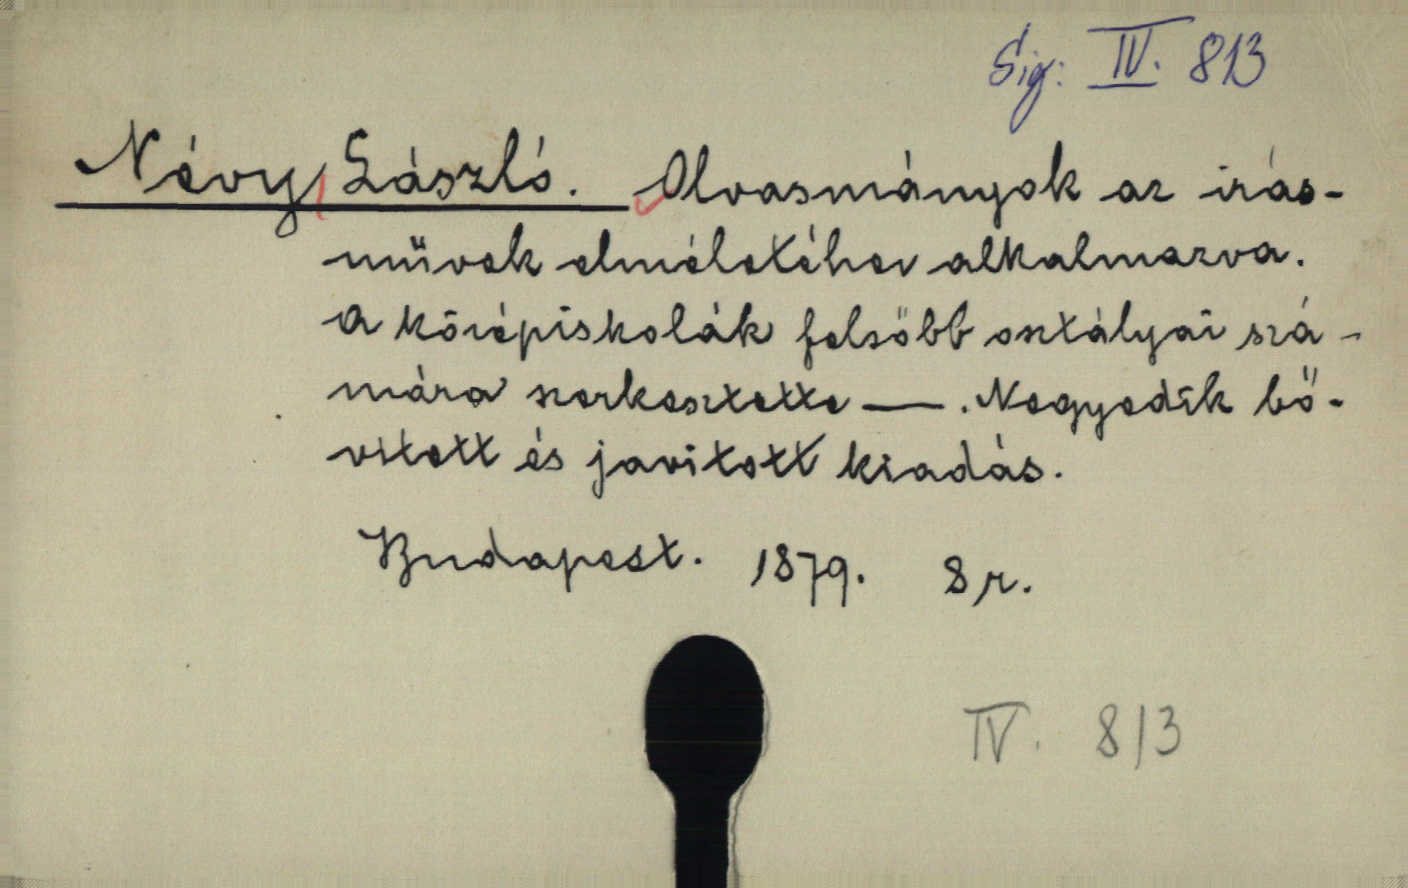 Sig: IV. 813
Névy, László. Olvasmányok az irás-
művek elméletéhez alkalmazva.
A középiskolák felsőbb osztályai szá-
mára szerkesztette —. Negyedik bő-
vitett és javitott kiadás.
Budapest. 1879. 8 r.
IV. 813